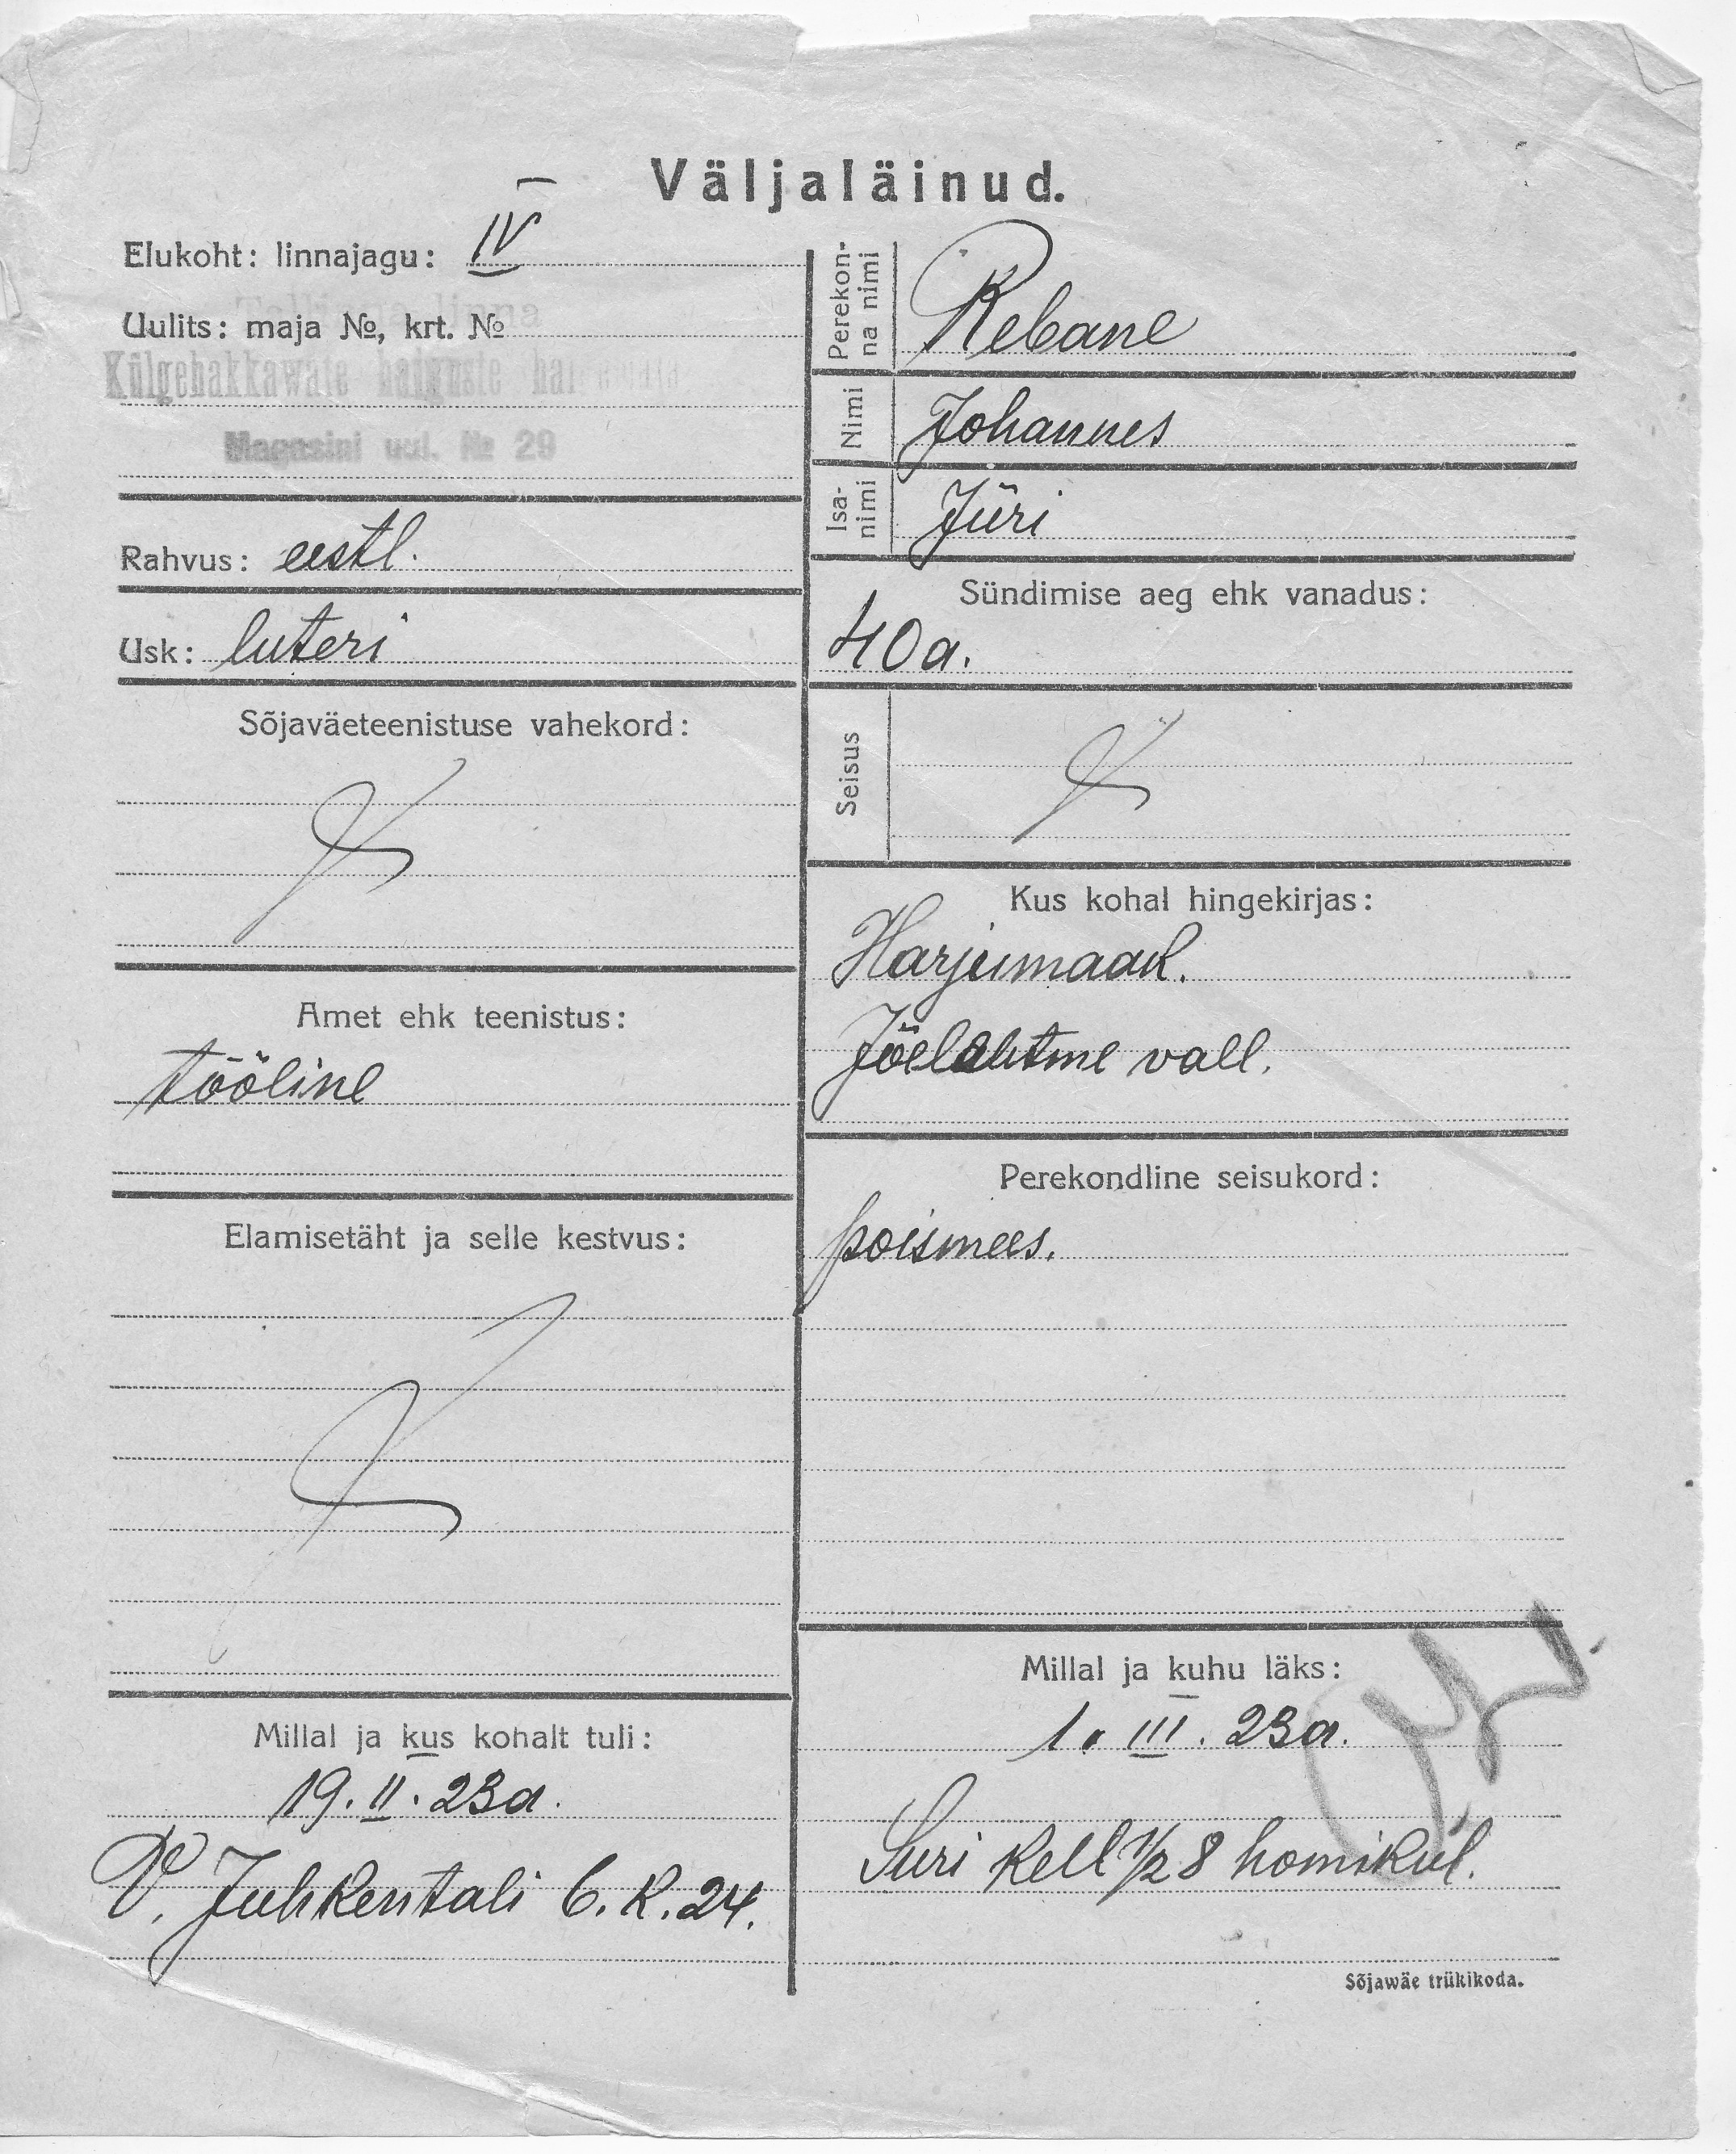 Väljaläinud.
Elukoht: linnajagu: IV
Tallinna linna
Uulits: maja №, krt. №
Külgehakkawate haiguste
Magasini uul. № 29
Rahvus: eestl.
Usk: luteri
Sõjaväeteenistuse vahekord:
Amet ehk teenistus:
tööline
Elamisetäht ja selle kestvus:
Millal ja kus kohalt tuli:
19. II. 23a.
V. Juhkentali 6. K. 24.
Perekonna nimi Rebane
Nimi Johannes
Isa-nimi Jüri
Sündimise aeg ehk vanadus:
40a.
Seisus
Kus kohal hingekirjas:
Harjumaak.
Jõelähtme vall.
Perekondline seisukord:
poismees.
Millal ja kuhu läks:
1. III. 23a.
Suri kell ½ 8 homikul.
Sõjawäe trükikoda.